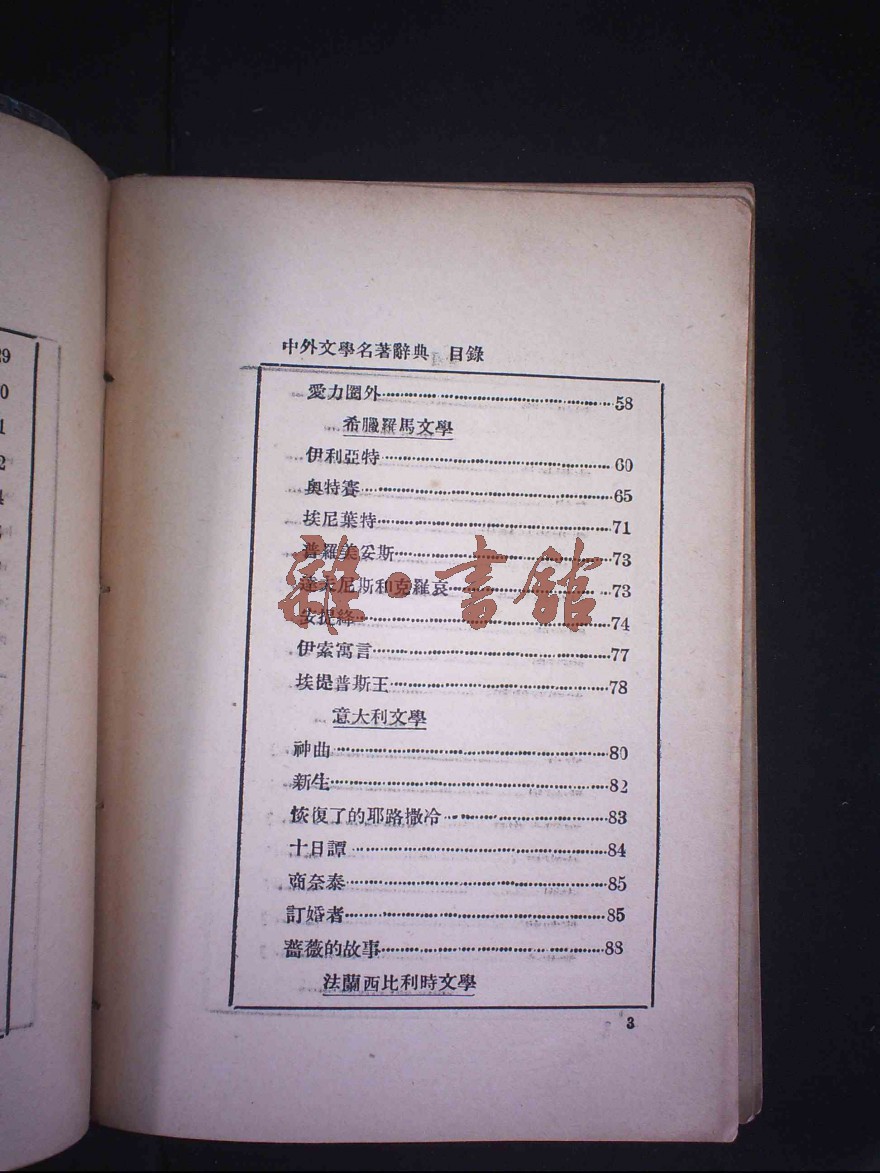 中外文學名著辭典 目錄
愛力圈外⋯⋯58
希臘羅馬文學
伊利亞特⋯⋯60
奧特賽⋯⋯65
埃尼葉特⋯⋯71
普羅美妥斯⋯⋯73
達夫尼斯和克羅哀⋯⋯73
安提絳⋯⋯74
伊索寓言⋯⋯77
埃提普斯王⋯⋯78
意大利文學
神曲⋯⋯80
新生⋯⋯82
恢復了的耶路撒冷⋯⋯83
十日譚⋯⋯84
商奈泰⋯⋯85
訂婚者⋯⋯85
薔薇的故事⋯⋯88
法蘭西比利時文學
3
雜·書館